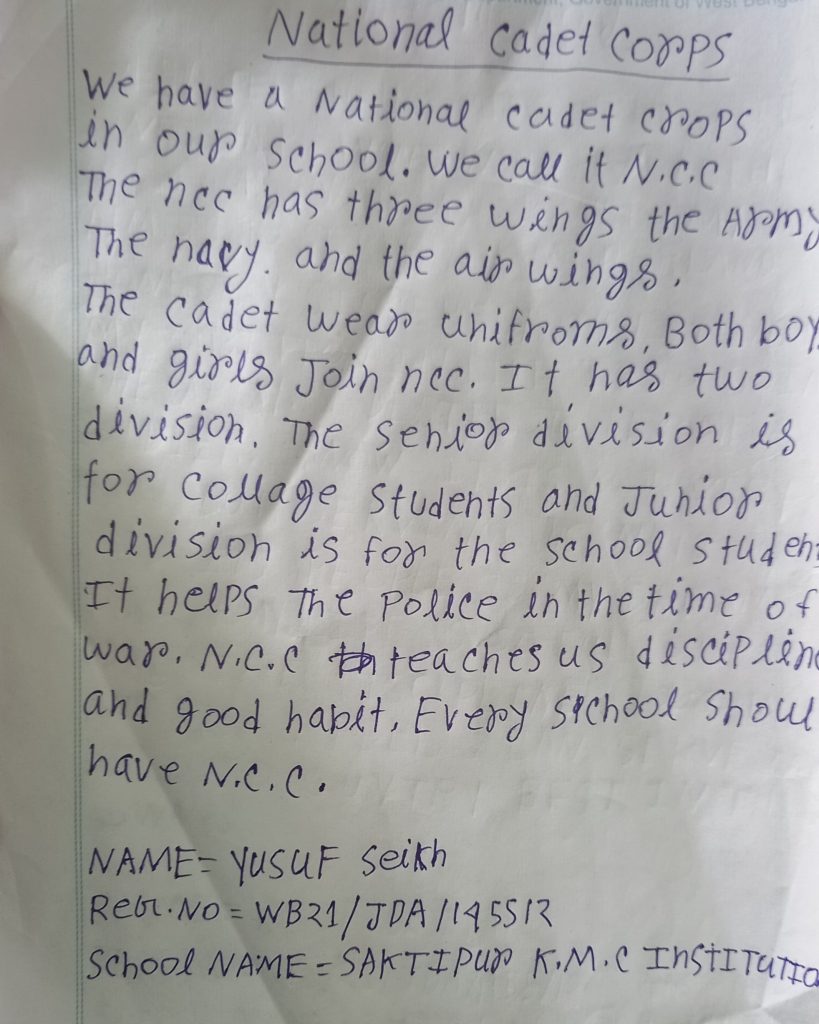 Government of West Beng
National cadet corps
We have a National cadet crops
in our school. We call it N.C.C
The ncc has three wings the Army
The navy. and the air wings.
The cadet wear unifroms, Both boy
and girls Join ncc. It has two
division. The senior division is
for collage students and Junior
division is for the school student
It helps The police in the time of
war. N.C.C teaches us disciplin
and good habit, Every school shoul
have N.C.C.
NAME= YUSUF Seikh
Regt. No = WB21/JDA/
School NAME = SAKTIPUR K.M.C INSTITUTIO